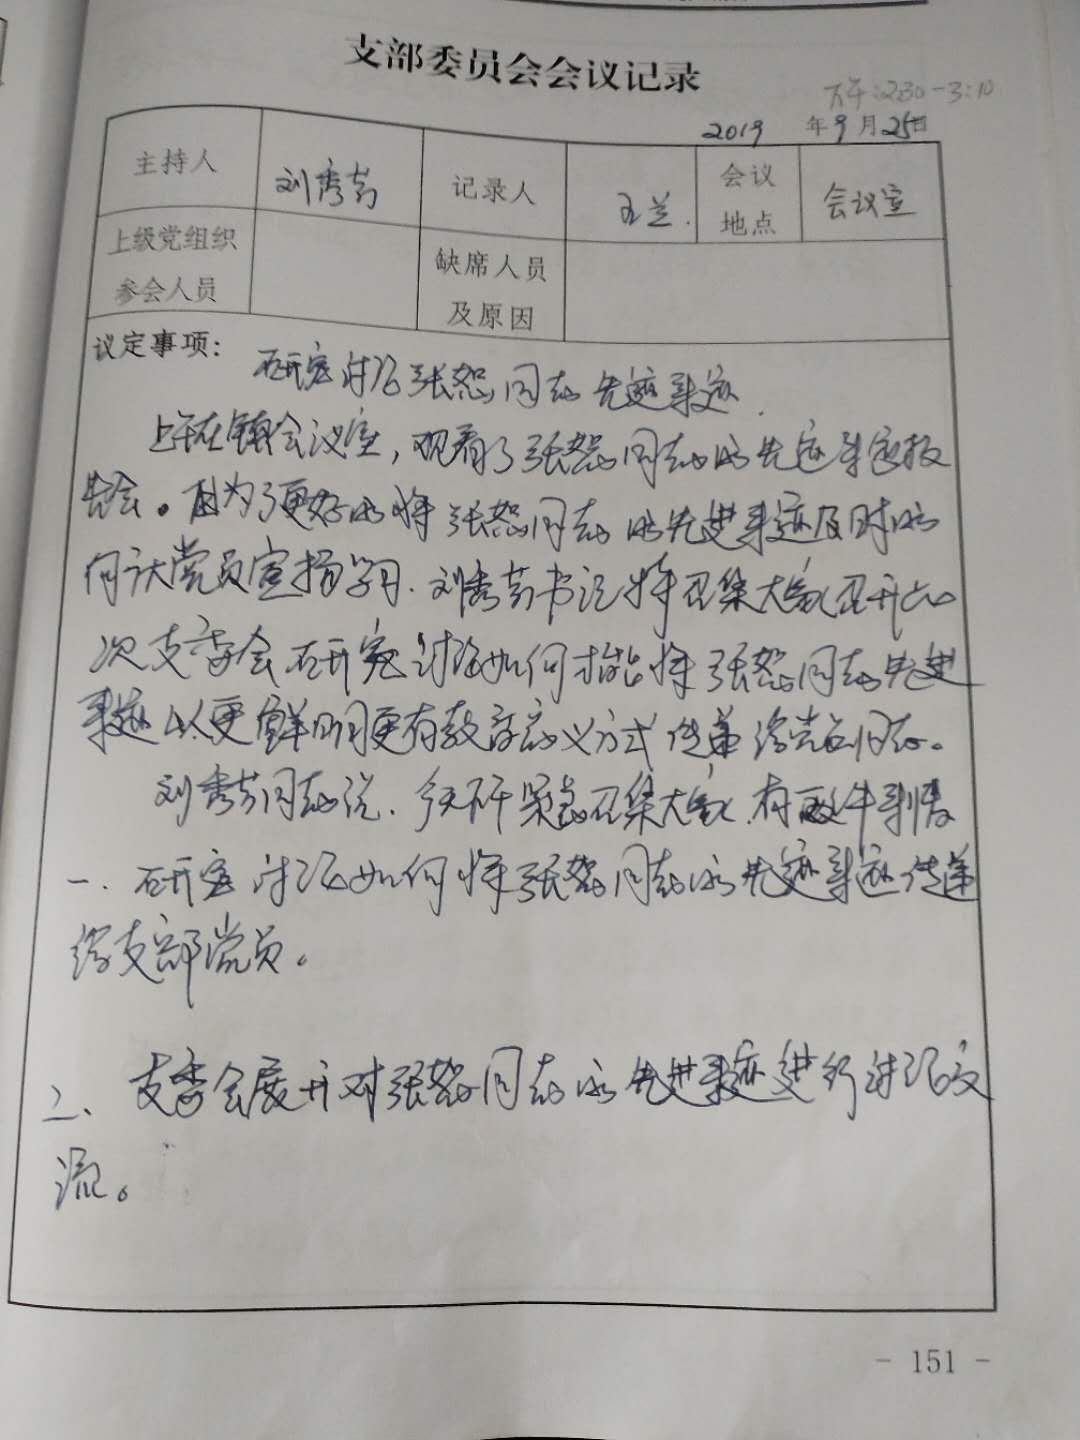 支部委员会会议记录
下午:2:30-3:10
2019年9月25日
主持人 刘秀芳 记录人 王兰. 会议地点 会议室
上级党组织参会人员 缺席人员及原因
议定事项:
研究讨论张恕同志先进事迹.
上午在镇会议室,观看了张恕同志的先进事迹报
告会。因为了更好的将张恕同志的先进事迹及时的
向广大党员宣扬学习.刘秀芳书记特召集大家召开此
次支委会研究讨论如何才能将张恕同志先进
事迹以更鲜明更有教育意义方式传递给党员同志。
刘秀芳同志说.今天下午紧急召集大家.有两件事情
一.研究讨论如何将张恕同志的先进事迹传递
给支部党员。
二、支委会展开对张恕同志的先进事迹进行讨论交
流。
- 151 -